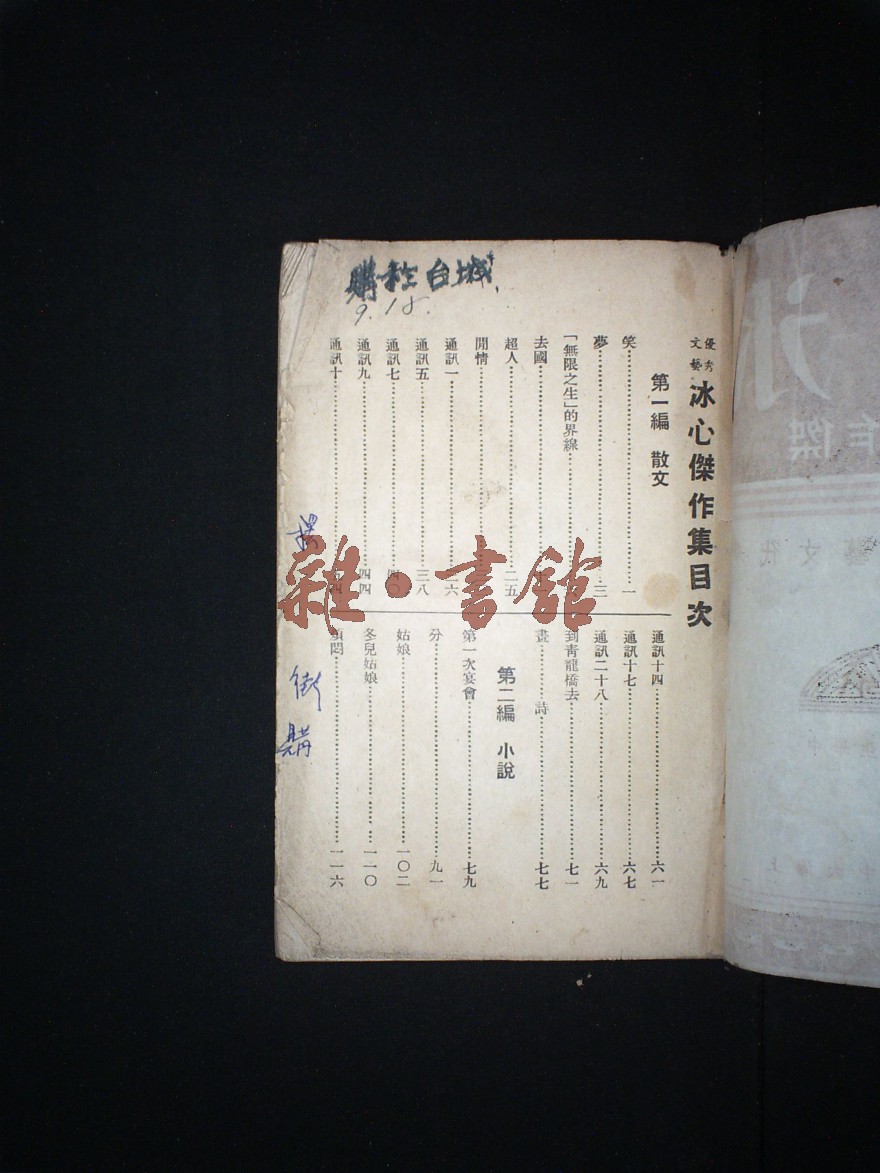 優秀
文藝
冰心傑作集目次
第一編 散文
笑……一
夢……三
「無限之生」的界線……
去國……
超人……二五
閒情……
通訊一……二六
通訊五……三八
通訊七……四〇
通訊九……四四
通訊十……
通訊十四……六一
通訊十七……六七
通訊二十八……六九
到青龍橋去……七一
畫……詩……七七
第二編 小說
第一次宴會……七九
分……九一
姑娘……一〇二
冬兒姑娘……一一〇
煩悶……一一六
購於台城
9.18.
街
購
雜·書館